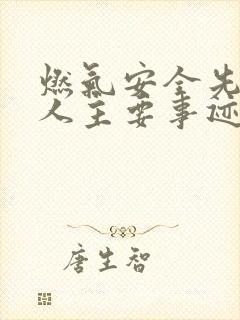 燃气安全先
人主要事迹
唐生智